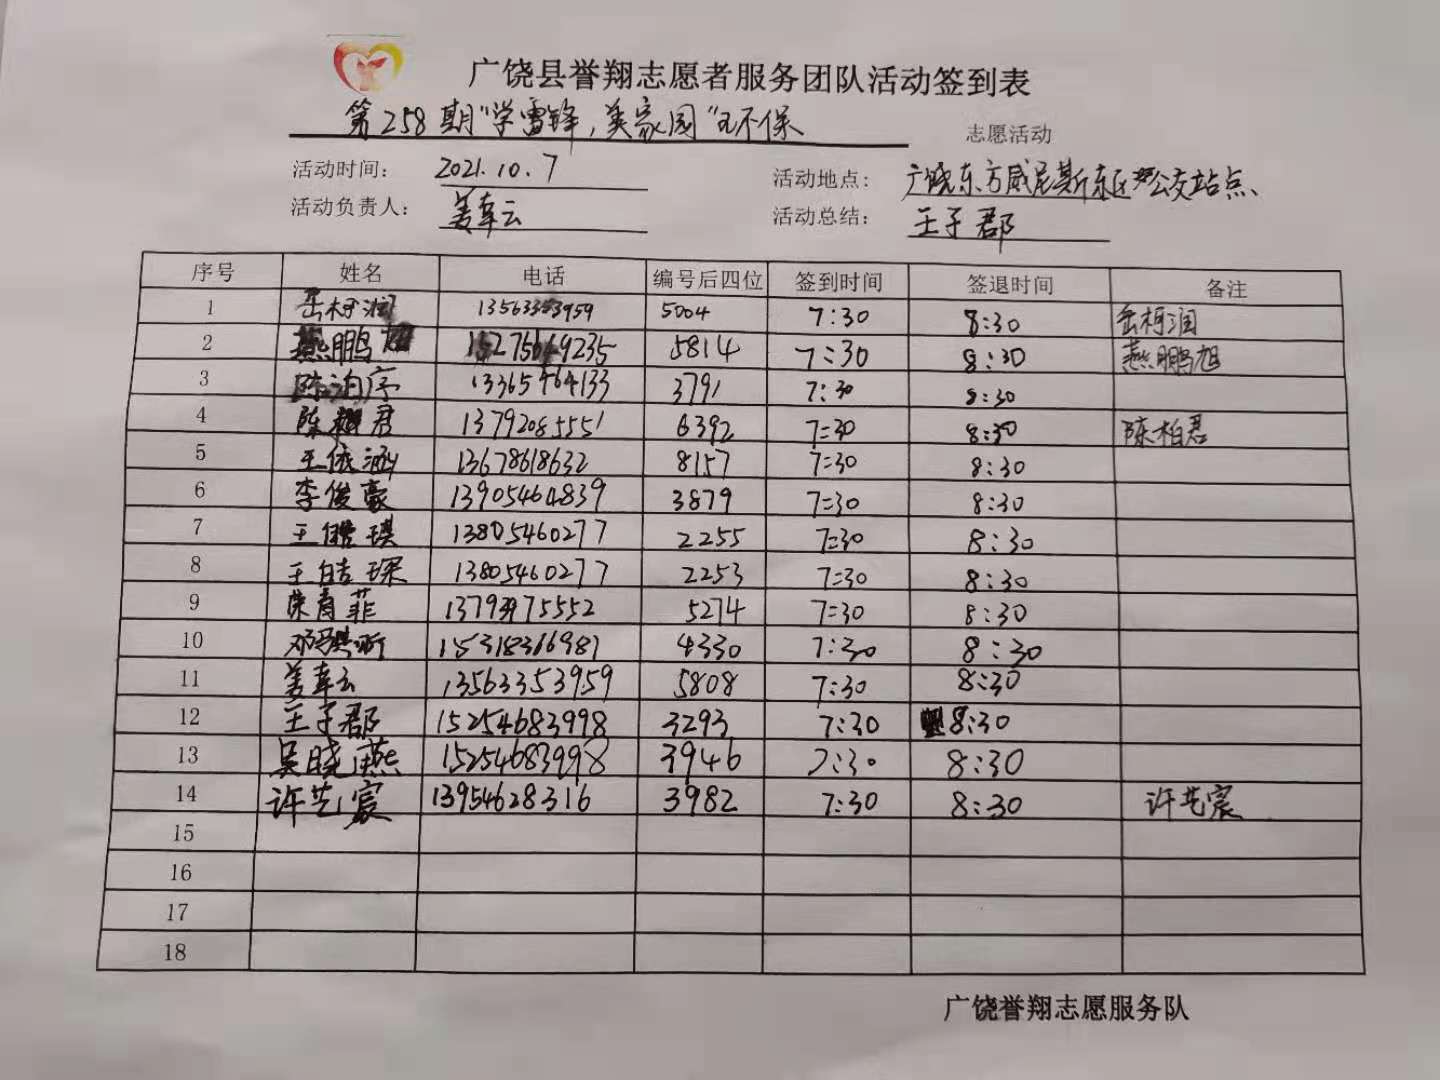 广饶县誉翔志愿者服务团队活动签到表
第258期"学雷锋,美家园"环保 志愿活动
活动时间: 2021.10.7 活动地点: 广饶东方威尼斯东区公交站点、
活动负责人: 姜幸云 活动总结: 王子郡
序号 姓名 电话 编号后四位 签到时间 签退时间 备注
1 岳柯润 13563353959 5004 7:30 8:30 岳柯润
2 燕鹏旭 15275069235 5814 7:30 8:30 燕鹏旭
3 陈泊序 13365464133 3791 7:30 8:30
4 陈柏君 13792085551 6392 7:30 8:30 陈柏君
5 王依涵 13678618632 8157 7:30 8:30
6 李俊豪 13905464839 3879 7:30 8:30
7 王皓琪 13805460277 2255 7:30 8:30
8 王皓琛 13805460277 2253 7:30 8:30
9 荣育菲 13793975552 5274 7:30 8:30
10 邓琪昕 15318366981 4330 7:30 8:30
11 姜幸云 13563353959 5808 7:30 8:30
12 王子郡 15254683998 3293 7:30 8:30
13 吴晓燕 15254683998 3946 7:30 8:30
14 许艺宸 13954628316 3982 7:30 8:30 许艺宸
15
16
17
18
广饶誉翔志愿服务队